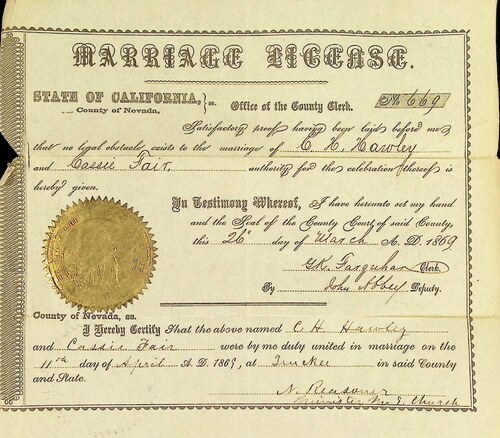 MARRIAGE LICENSE.
STATE OF CALIFORNIA, } ss. Office of the County Clerk. No 669
County of Nevada,
Satisfactory proof having been laid before me
that no legal obstacle exists to the marriage of C. H. Hawley
and Cassie Fair, authority for the celebration thereof is
hereby given.
In Testimony Whereof, I have hereunto set my hand
and the Seal of the County Court of said County,
this 26th day of March A. D. 1869
G.K. Farquhar Clerk.
By John Abbey Deputy.
County of Nevada, ss.
I Hereby Certify That the above named C. H. Hawley
and Cassie Fair were by me duly united in marriage on the
11th day of April A. D. 1869, at Truckee in said County
and State.
N. Reasoner
Minister M. E. Church